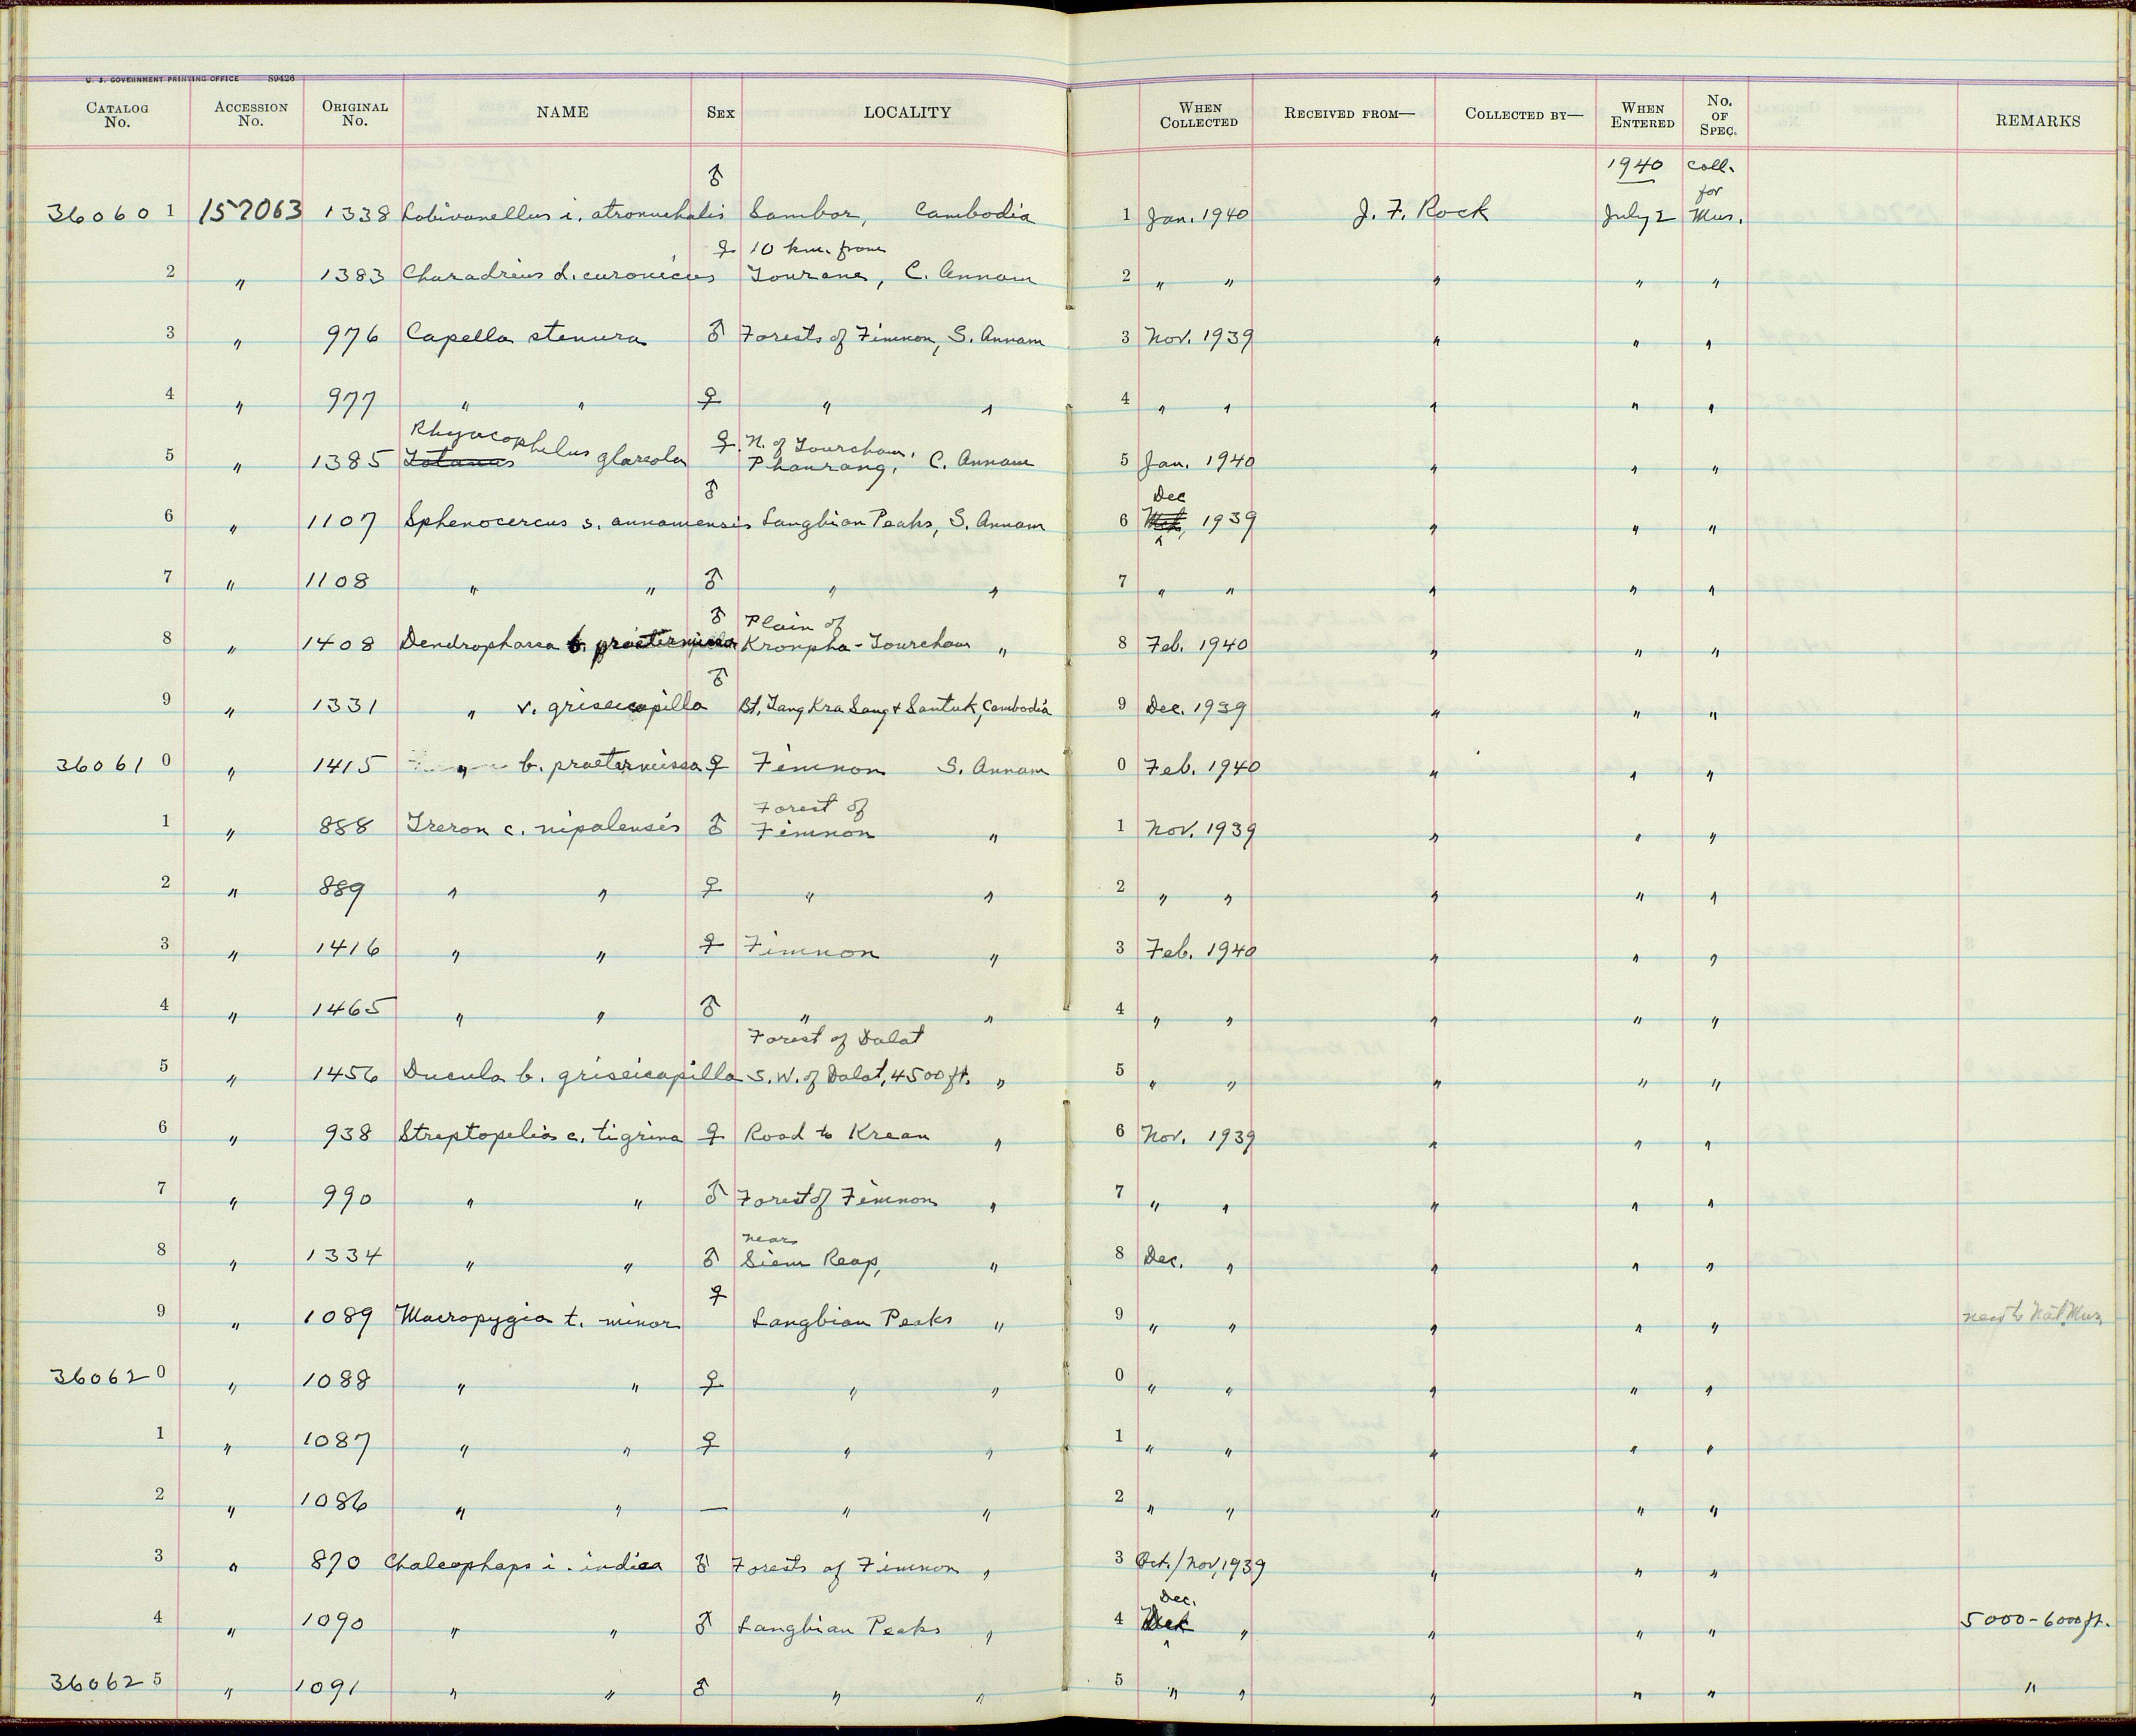 U. S. GOVERNMENT PRINTING OFFICE 89426
CATALOG No. ACCESSION No. ORIGINAL No. NAME SEX LOCALITY WHEN COLLECTED RECEIVED FROM— COLLECTED BY— WHEN ENTERED No. OF SPEC. REMARKS
1940 coll. for
36060 1 152063 1338 Lobivanellus i. atronuchalis ♂ Sambor, Cambodia 1 Jan. 1940 J. F. Rock July 2 Mus.
2 " 1383 Charadrius d. curonicus ♀ 10 km. from Tourane, C. Annam 2 " " " " "
3 " 976 Capella stenura ♂ Forests of Fimnon, S. Annam 3 Nov. 1939 " " "
4 " 977 " " ♀ " " 4 " " " " "
5 " 1385 Totanus Rhyacophilus glareola ♀ N. of Tourcham, Phanrang, C. Annam 5 Jan. 1940 " " "
6 " 1107 Sphenocercus s. annamensis ♂ Langbian Peaks, S. Annam 6 Dec 1939 " " "
7 " 1108 " " ♂ " " 7 " " " " "
8 " 1408 Dendrophassa b. praetermissa ♂ Plain of Kronpha-Tourcham " 8 Feb. 1940 " " "
9 " 1331 " v. griseicapilla ♂ Bt. Tang Kra Sang + Santuk, Cambodia 9 Dec. 1939 " " "
36061 0 " 1415 " b. praetermissa ♀ Fimnon S. Annam 0 Feb. 1940 " " "
1 " 888 Treron c. nipalensis ♂ Forest of Fimnon " 1 Nov. 1939 " " "
2 " 889 " " ♀ " " 2 " " " " "
3 " 1416 " " ♀ Fimnon " 3 Feb. 1940 " " "
4 " 1465 " " ♂ " " 4 " " " " "
5 " 1456 Ducula b. griseicapilla Forest of Dalat S.W. of Dalat, 4500 ft. " 5 " " " " "
6 " 938 Streptopelia c. tigrina ♀ Road to Krean " 6 Nov. 1939 " " "
7 " 990 " " ♂ Forest of Fimnon " 7 " " " " "
8 " 1334 " " ♂ near Siem Reap, " 8 Dec. " " " "
9 " 1089 Macropygia t. minor ♀ Langbian Peaks " 9 " " " " " new to Nat. Mus.
36062 0 " 1088 " " ♀ " " 0 " " " " "
1 " 1087 " " ♀ " " 1 " " " " "
2 " 1086 " " — " " 2 " " " " "
3 " 870 Chalcophaps i. indica ♂ Forests of Fimnon " 3 Oct./Nov, 1939 " " "
4 " 1090 " " ♂ Langbian Peaks " 4 Dec. " " " " 5000-6000 ft.
36062 5 " 1091 " " ♂ " " 5 " " " " " "